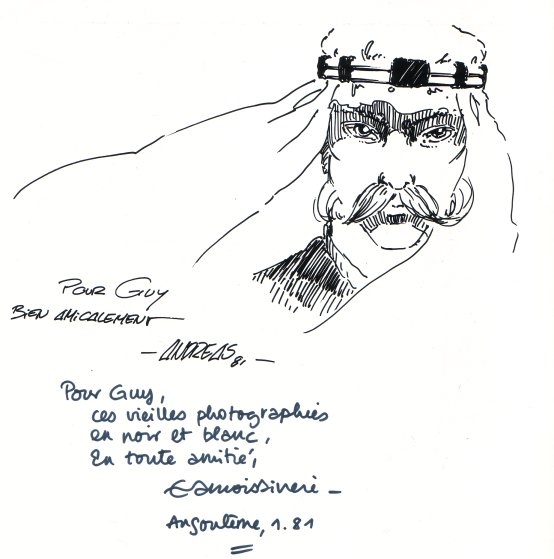 Pour Guy
BIEN AMICALEMENT
– ANDREAS 81 –
Pour Guy,
ces vieilles photographies
en noir et blanc,
En toute amitié,
Angoulême, 1.81